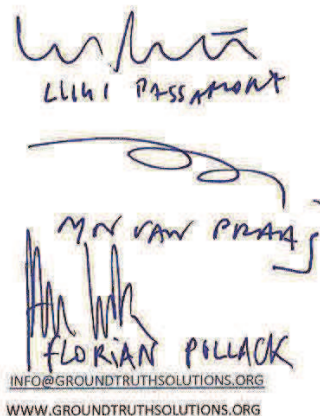 PASSAMONT
MN VAN PRAAG
FLORIAN POLLACK
INFO@GROUNDTRUTHSOLUTIONS.ORG
WWW.GROUNDTRUTHSOLUTIONS.ORG